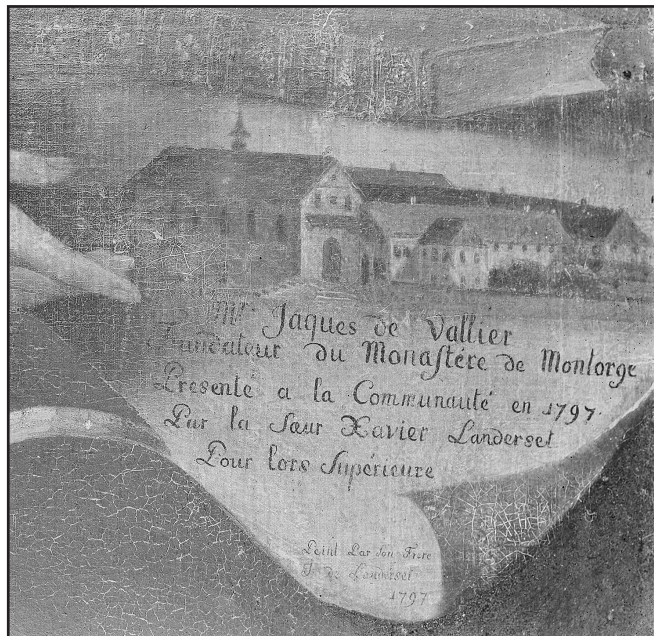 Mr. Jaques de Vallier
Fundateur du Monaſtére de Montorge
Presenté a la Communauté en 1797.
Par la Sœur Xavier Landerset
Pour lors Supérieure
Peint Par Son Frere
J. De Landerset
1797